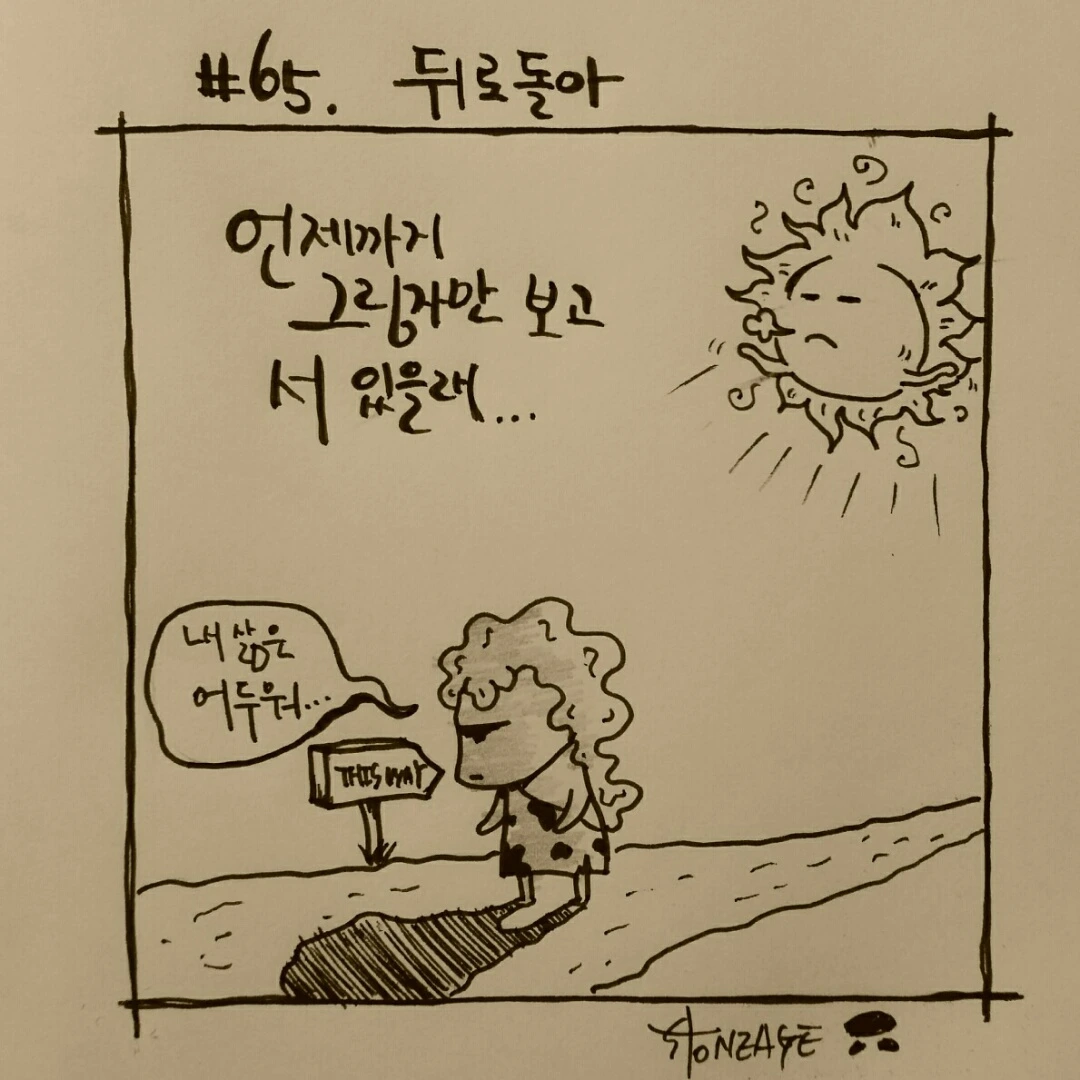 #65. 뒤로돌아
언제까지
그림자만 보고
서 있을래...
내 삶은
어두워...
THIS WAY
STONZAGE